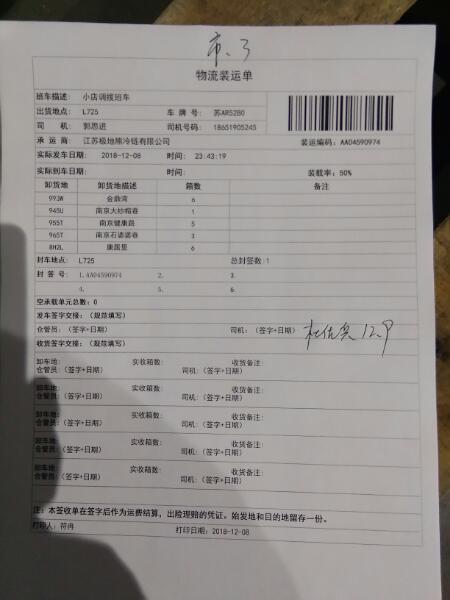 物流装运单
班车描述: 小店调拨班车
出货地点: L725 车 牌 号: 苏AR5280
司 机: 郭思进 司机号码: 18651905245
承 运 商: 江苏极地熊冷链有限公司 装运编码: AA04590974
实际发车日期: 2018-12-08 时间: 23:43:19
实际到车日期: 时间: 装载率: 50%
卸货地 卸货地描述 箱数 备注
993W 金鼎湾 6
945U 南京大纱帽巷 1
955T 南京健康路 5
965T 南京石婆婆巷 3
8H2L 康居里 6
封车地点: L725 总封签数:1
封 签 号: 1.AA04590974 2. 3.
4. 5. 6.
空承载单元总数: 0
发车签字交接: (规范填写)
仓管员: (签字+日期) 司机: (签字+日期) 12.9
收货签字交接: (规范填写)
卸车地: 实收箱数: 收货备注:
仓管员: (签字+日期) 司机: (签字+日期)
卸车地: 实收箱数: 收货备注:
仓管员: (签字+日期) 司机: (签字+日期)
卸车地: 实收箱数: 收货备注:
仓管员: (签字+日期) 司机: (签字+日期)
卸车地: 实收箱数: 收货备注:
仓管员: (签字+日期) 司机: (签字+日期)
卸车地: 实收箱数: 收货备注:
仓管员: (签字+日期) 司机: (签字+日期)
注: 本签收单在签字后作为运费结算, 出险理赔的凭证。始发地和目的地留存一份。
打印人: 符冉 打印日期: 2018-12-08